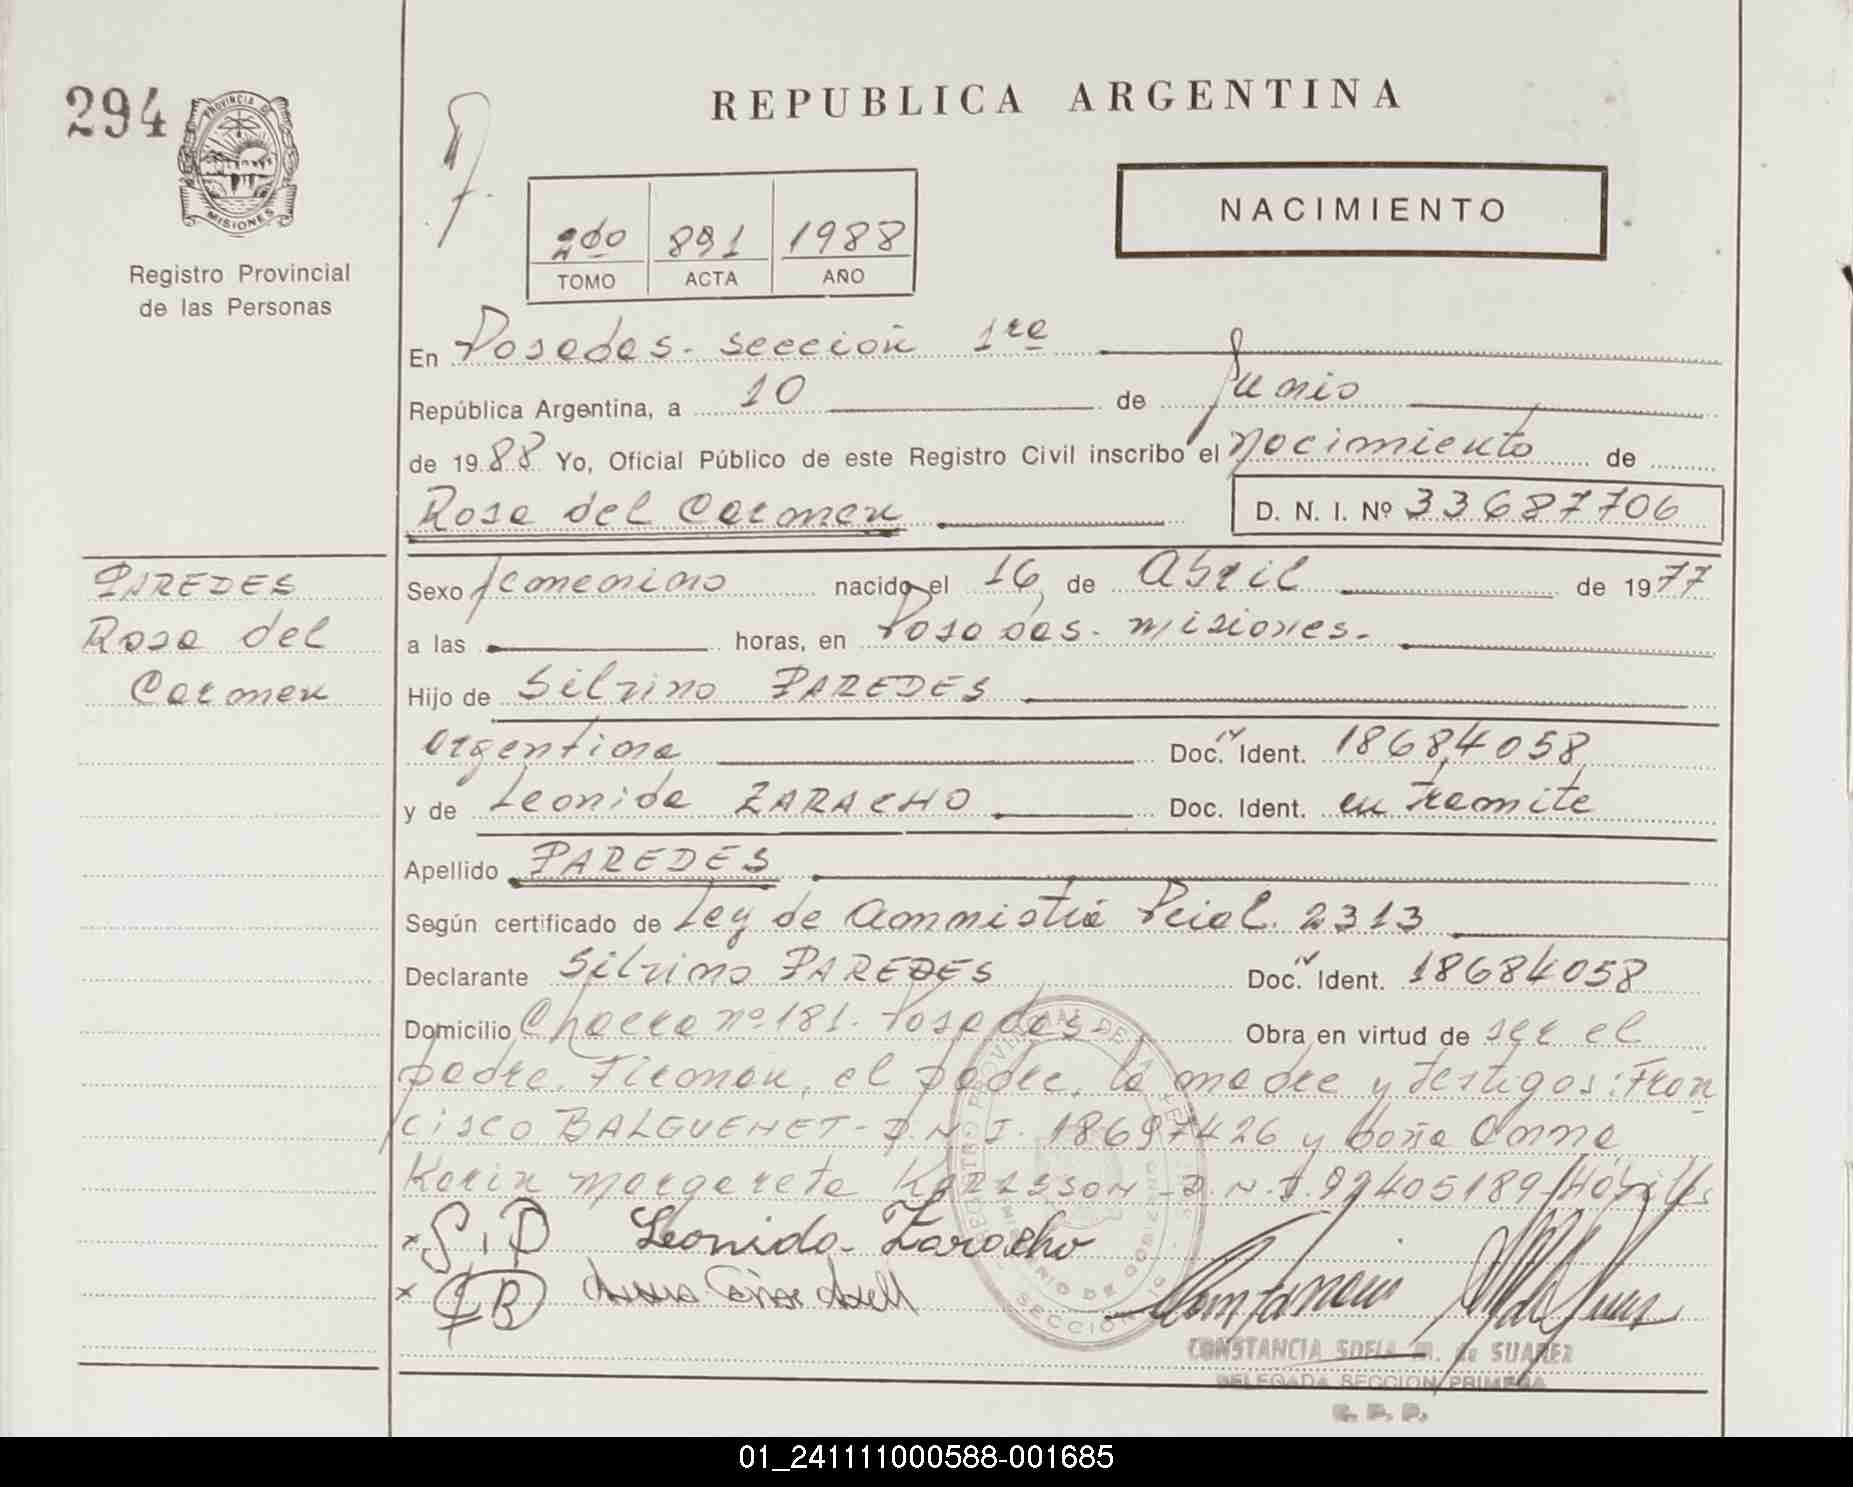 294
PROVINCIA DE
MISIONES
Registro Provincial
de las Personas
REPUBLICA ARGENTINA
NACIMIENTO
2do 891 1988
TOMO ACTA AÑO
En Posadas. sección 1ra
República Argentina, a 10 de Junio
de 1988 Yo, Oficial Público de este Registro Civil inscribo el Nacimiento de
Rosa del Carmen D. N. I. Nº 33687706
PAREDES
Rosa del
Carmen
Sexo femenino nacido el 16 de Abril de 1977
a las horas, en Posadas. misiones.
Hijo de Silvino PAREDES
argentina Doc. Ident. 18684058
y de Leonida ZARACHO Doc. Ident. en tramite
Apellido PAREDES
Según certificado de Ley de Ammistia Pcial. 2313
Declarante Silvino PAREDES Doc. Ident. 18684058
Domicilio Chacra nº 181. Posadas Obra en virtud de ser el
padre. Firman, el padre, la madre y testigos: Fran
cisco BALGUENET - D.N.I. 18697426 y doña Anna
Karin margareta KARLSSON - D.N.I. 92405189/Hábiles
x S.P Leonida Zaracho
x
CONSTANCIA SOFIA M. de SUAREZ
DELEGADA SECCION PRIMERA
R. P. P.
01_241111000588-001685